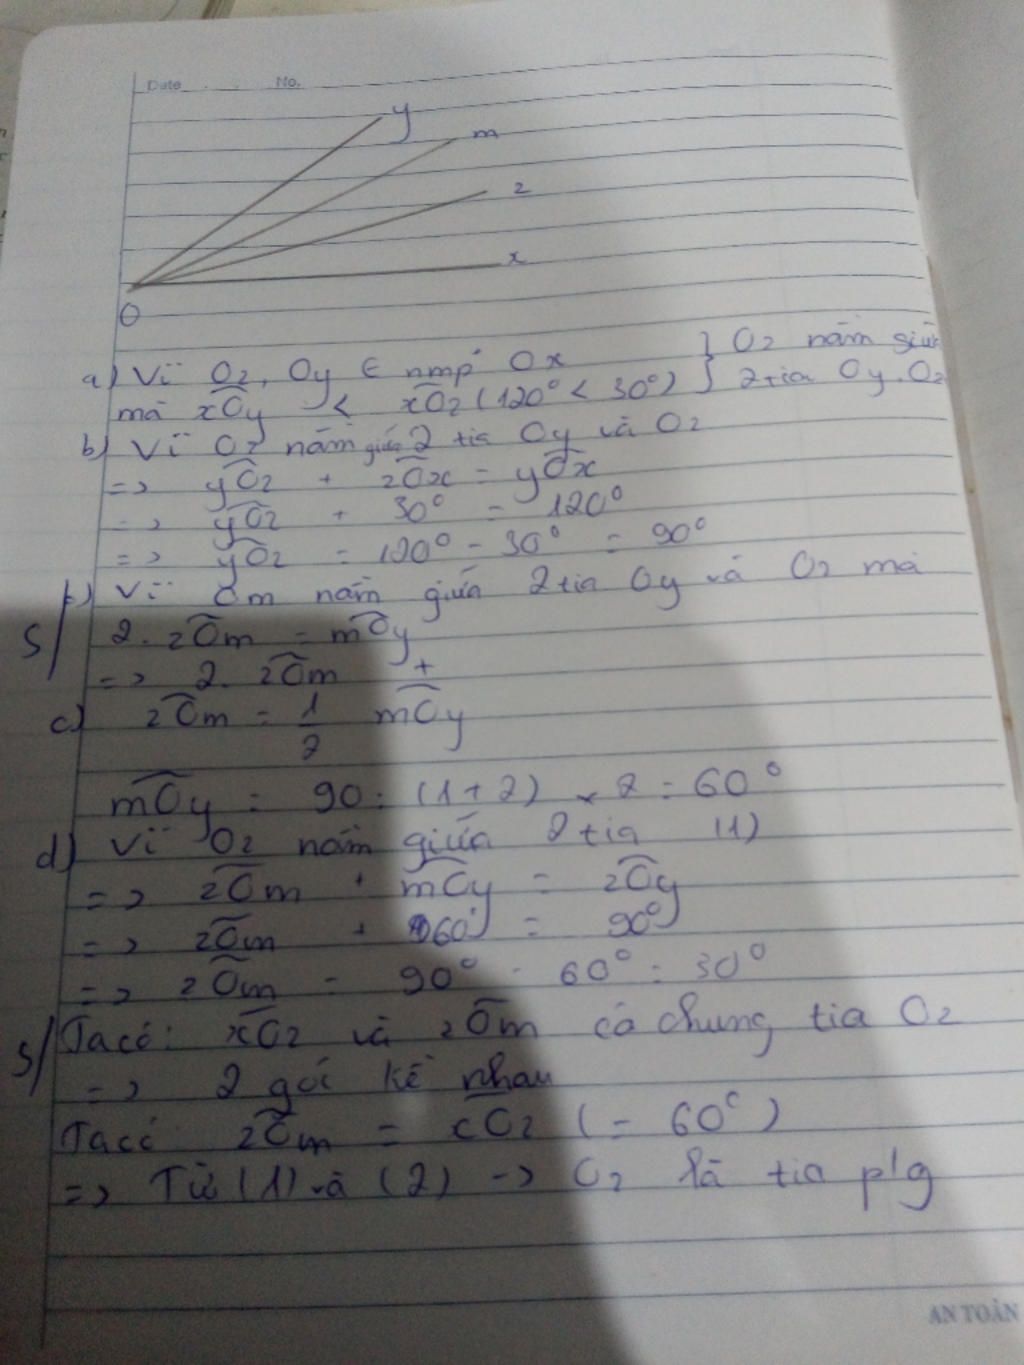 Date No.
y
m
z
x
O
a) Vì Oz, Oy ∈ nmp Ox } Oz nằm giữa
mà xOy < xOz (120° < 30°) } 2 tia Oy, Oz
b) Vì Oz nằm giữa 2 tia Oy và Oz
=> yOz + zOx = yOx
=> yOz + 30° = 120°
=> yOz = 120° - 30° = 90°
Vì Om nằm giữa 2 tia Oy và Oz mà
S/ 2. zOm = mOy
=> 2. zOm +
c) zOm = 1/2 mOy
mOy = 90 : (1+2) x 2 = 60°
d) Vì Oz nằm giữa 2 tia (1)
=> zOm + mOy = zOy
=> zOm + 60° = 90°
=> zOm = 90° - 60° = 30°
S/ Ta có: xOz và zOm có chung tia Oz
=> 2 góc kề nhau
Ta có zOm = xOz (= 60°)
=> Từ (1) và (2) -> Oz là tia p/g
AN TOÀN